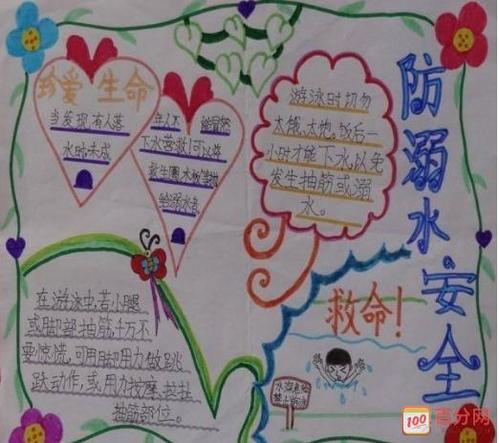 防溺水安全
珍爱 生命
当发现有人落
水时,未成
年人不
下水营救!可以将
救生圈,木板等抛
给溺水者
游泳时切勿
太饿、太饱。饭后一
小时才能下水,以免
发生抽筋或溺
水。
在游泳中,若小腿
或脚部抽筋,千万不
要惊慌,可用脚用力做跳
跃动作,或用力按摩、拉扯
抽筋部位。
救命!
禁止游泳
100
百分网